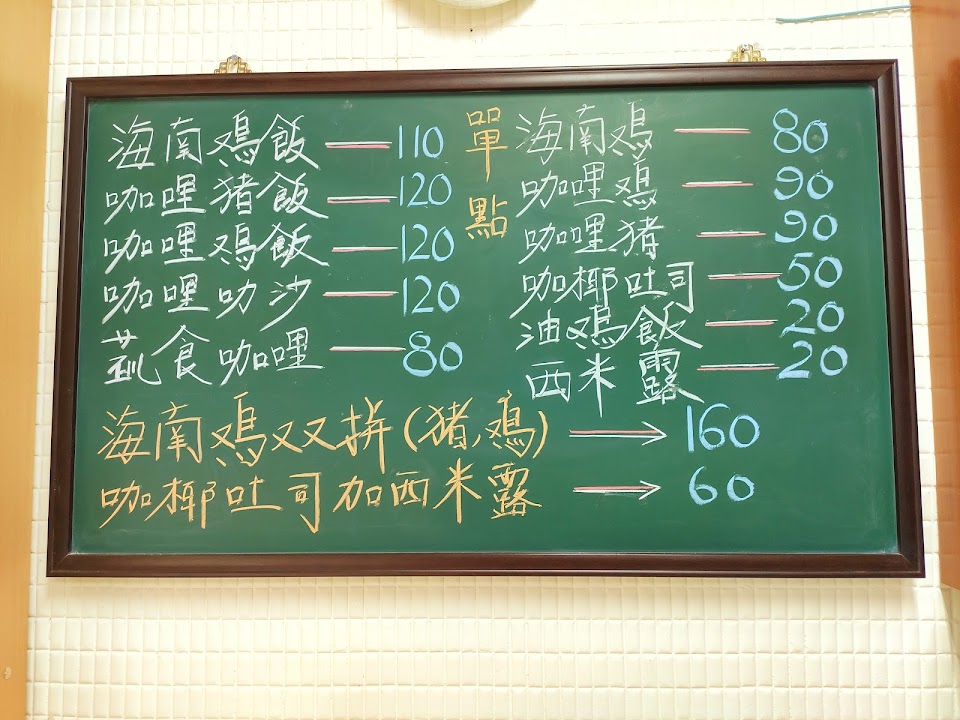 海南鸡飯 — 110
咖哩猪飯 — 120
咖哩鸡飯 — 120
咖哩叻沙 — 120
蔬食咖哩 — 80
單點
海南鸡 — 80
咖哩鸡 — 90
咖哩猪 — 90
咖椰吐司 — 50
油鸡飯 — 20
西米露 — 20
海南鸡双拼(猪、鸡) → 160
咖椰吐司加西米露 → 60